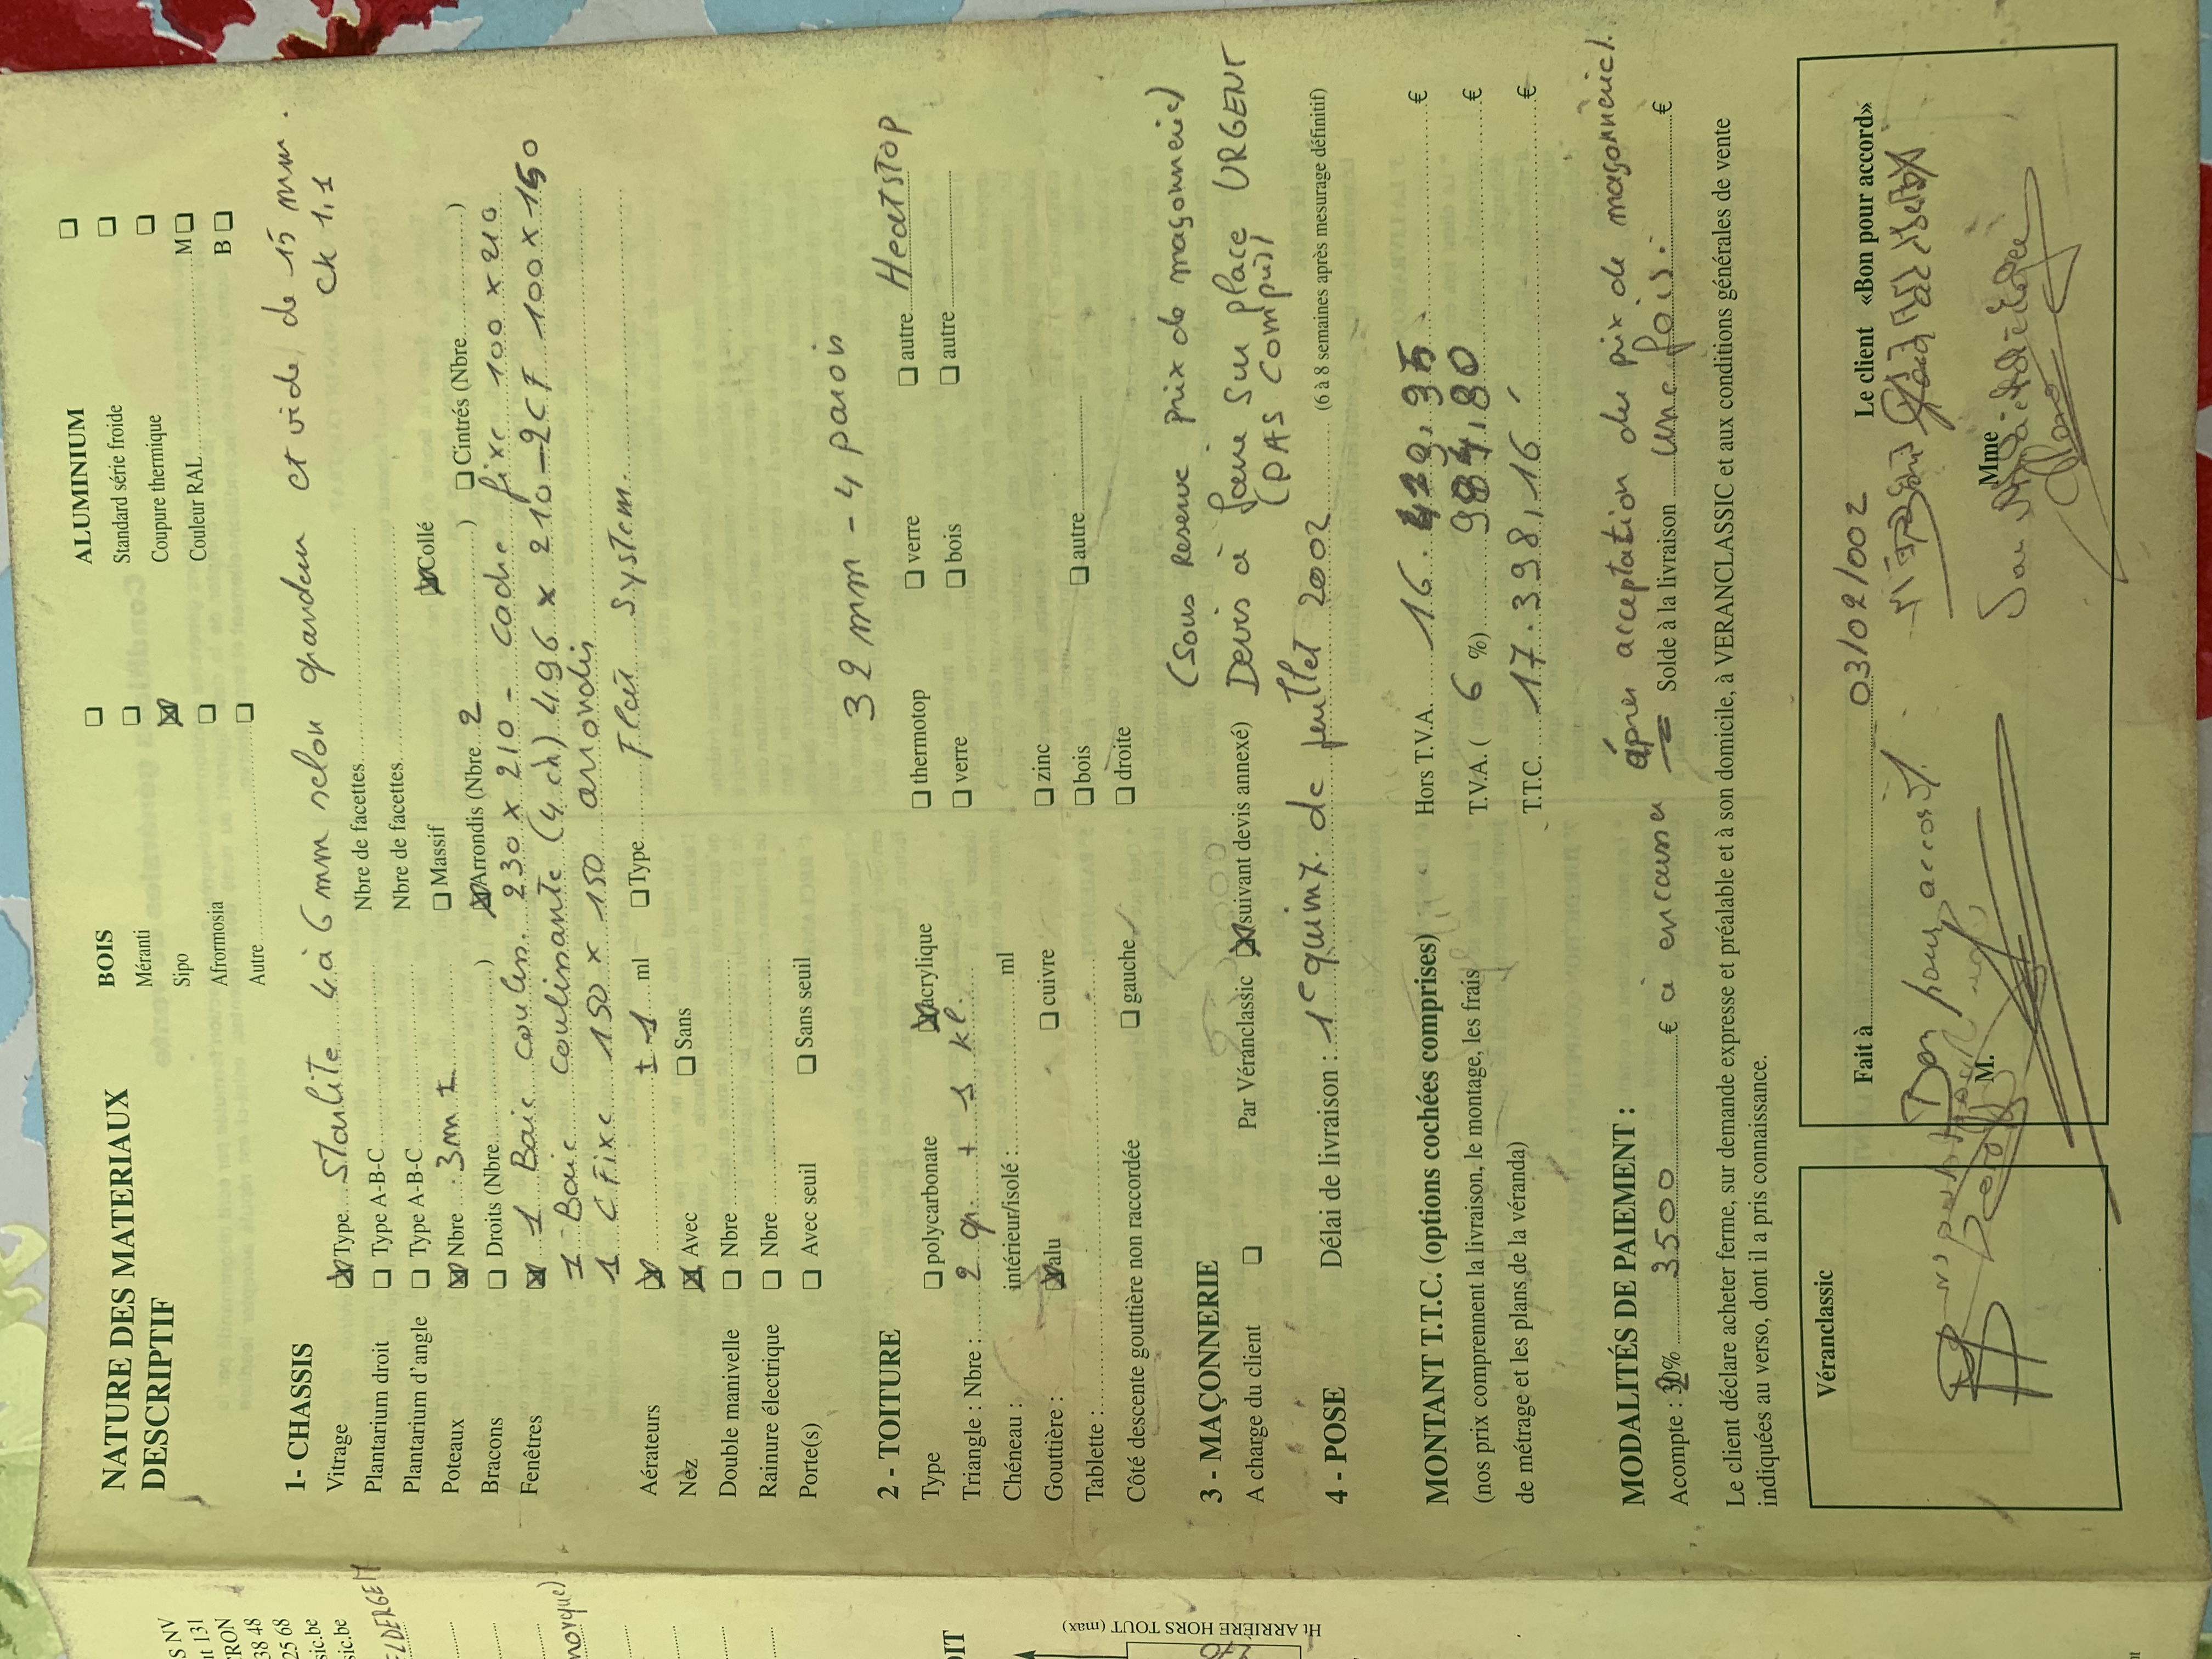 NATURE DES MATERIAUX
DESCRIPTIF
BOIS
Méranti
Sipo
Afrormosia
Autre
ALUMINIUM
Standard série froide
Coupure thermique
Couleur RAL M
B
1- CHASSIS
4 à 6 mm selon grandeur et vide de 15 mm.
Vitrage Type Starlite CK 1.1
Plantarium droit Type A-B-C Nbre de facettes
Plantarium d'angle Type A-B-C Nbre de facettes
Poteaux Nbre : 3m ± Massif Collé
Bracons Droits (Nbre ) Arrondis (Nbre 2 ) Cintrés (Nbre )
Fenêtres 1 Baie coulin. 230 x 210 - cadre fixe 100 x 210
1 Baie coulinante (4 ch) 496 x 210 - 2 CF 100 x 150
1 C Fixe 150 x 150 arrondis
Aérateurs ± 1 ml Type Flat System.
Nez Avec Sans
Double manivelle Nbre
Rainure électrique Nbre
Porte(s) Avec seuil Sans seuil
2 - TOITURE 32 mm - 4 parois
Type polycarbonate acrylique thermotop verre autre Heatstop
Triangle : Nbre : 2 gr. + 1 kl. verre bois autre
Chéneau : intérieur/isolé : ml
Gouttière : alu cuivre zinc
Tablette : bois autre
Côté descente gouttière non raccordée gauche droite
3 - MAÇONNERIE (Sous Reserve prix de maçonnerie)
A charge du client Par Véranclassic suivant devis annexé) Devis à faire sur place URGENT
(PAS Compris)
4 - POSE Délai de livraison : 1e quinz. de juillet 2002 (6 à 8 semaines après mesurage définitif)
MONTANT T.T.C. (options cochées comprises) Hors T.V.A. 16. €
(nos prix comprennent la livraison, le montage, les frais T.V.A. ( 6 %) 984.80 €
de métrage et les plans de la véranda) T.T.C. 17.398,16 €
MODALITÉS DE PAIEMENT : après acceptation du prix de maçonnerie/.
Acompte : % 3500 € à encaisser Solde à la livraison une fois. €
Le client déclare acheter ferme, sur demande expresse et préalable et à son domicile, à VERANCLASSIC et aux conditions générales de vente
indiquées au verso, dont il a pris connaissance.
Véranclassic
Fait à 03/02/002 Le client «Bon pour accord»
Bon pour accord
M. Mme
S NV
t 131
RON
38 48
25 68
sic.be
sic.be
OIT
Ht ARRIÈRE HORS TOUT (max)